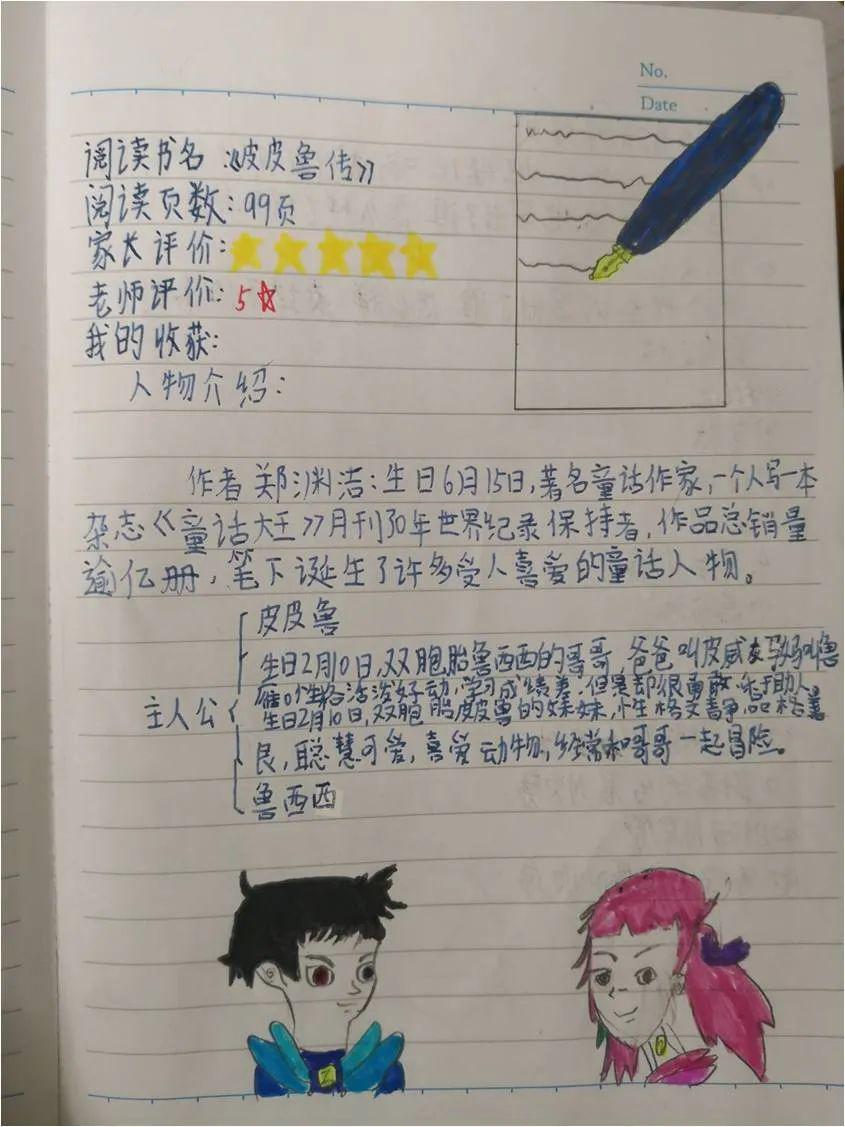 No.
Date
阅读书名:《皮皮鲁传》
阅读页数:99页
家长评价:
老师评价:5
我的收获:
人物介绍:
作者郑渊洁:生日6月15日,著名童话作家,一个人写一本
杂志《童话大王》月刊30年世界纪录保持者,作品总销量
逾亿册,笔下诞生了许多受人喜爱的童话人物。
皮皮鲁
生日2月10日,双胞胎鲁西西的哥哥,爸爸叫皮威 妈妈叫鲁
主人公
性格活泼好动,学习成绩差,但是却很勇敢,乐于助人。
生日2月10日,双胞胎皮皮鲁的妹妹,性格文静,品格善
良,聪慧可爱,喜爱动物,经常和哥哥一起冒险。
鲁西西